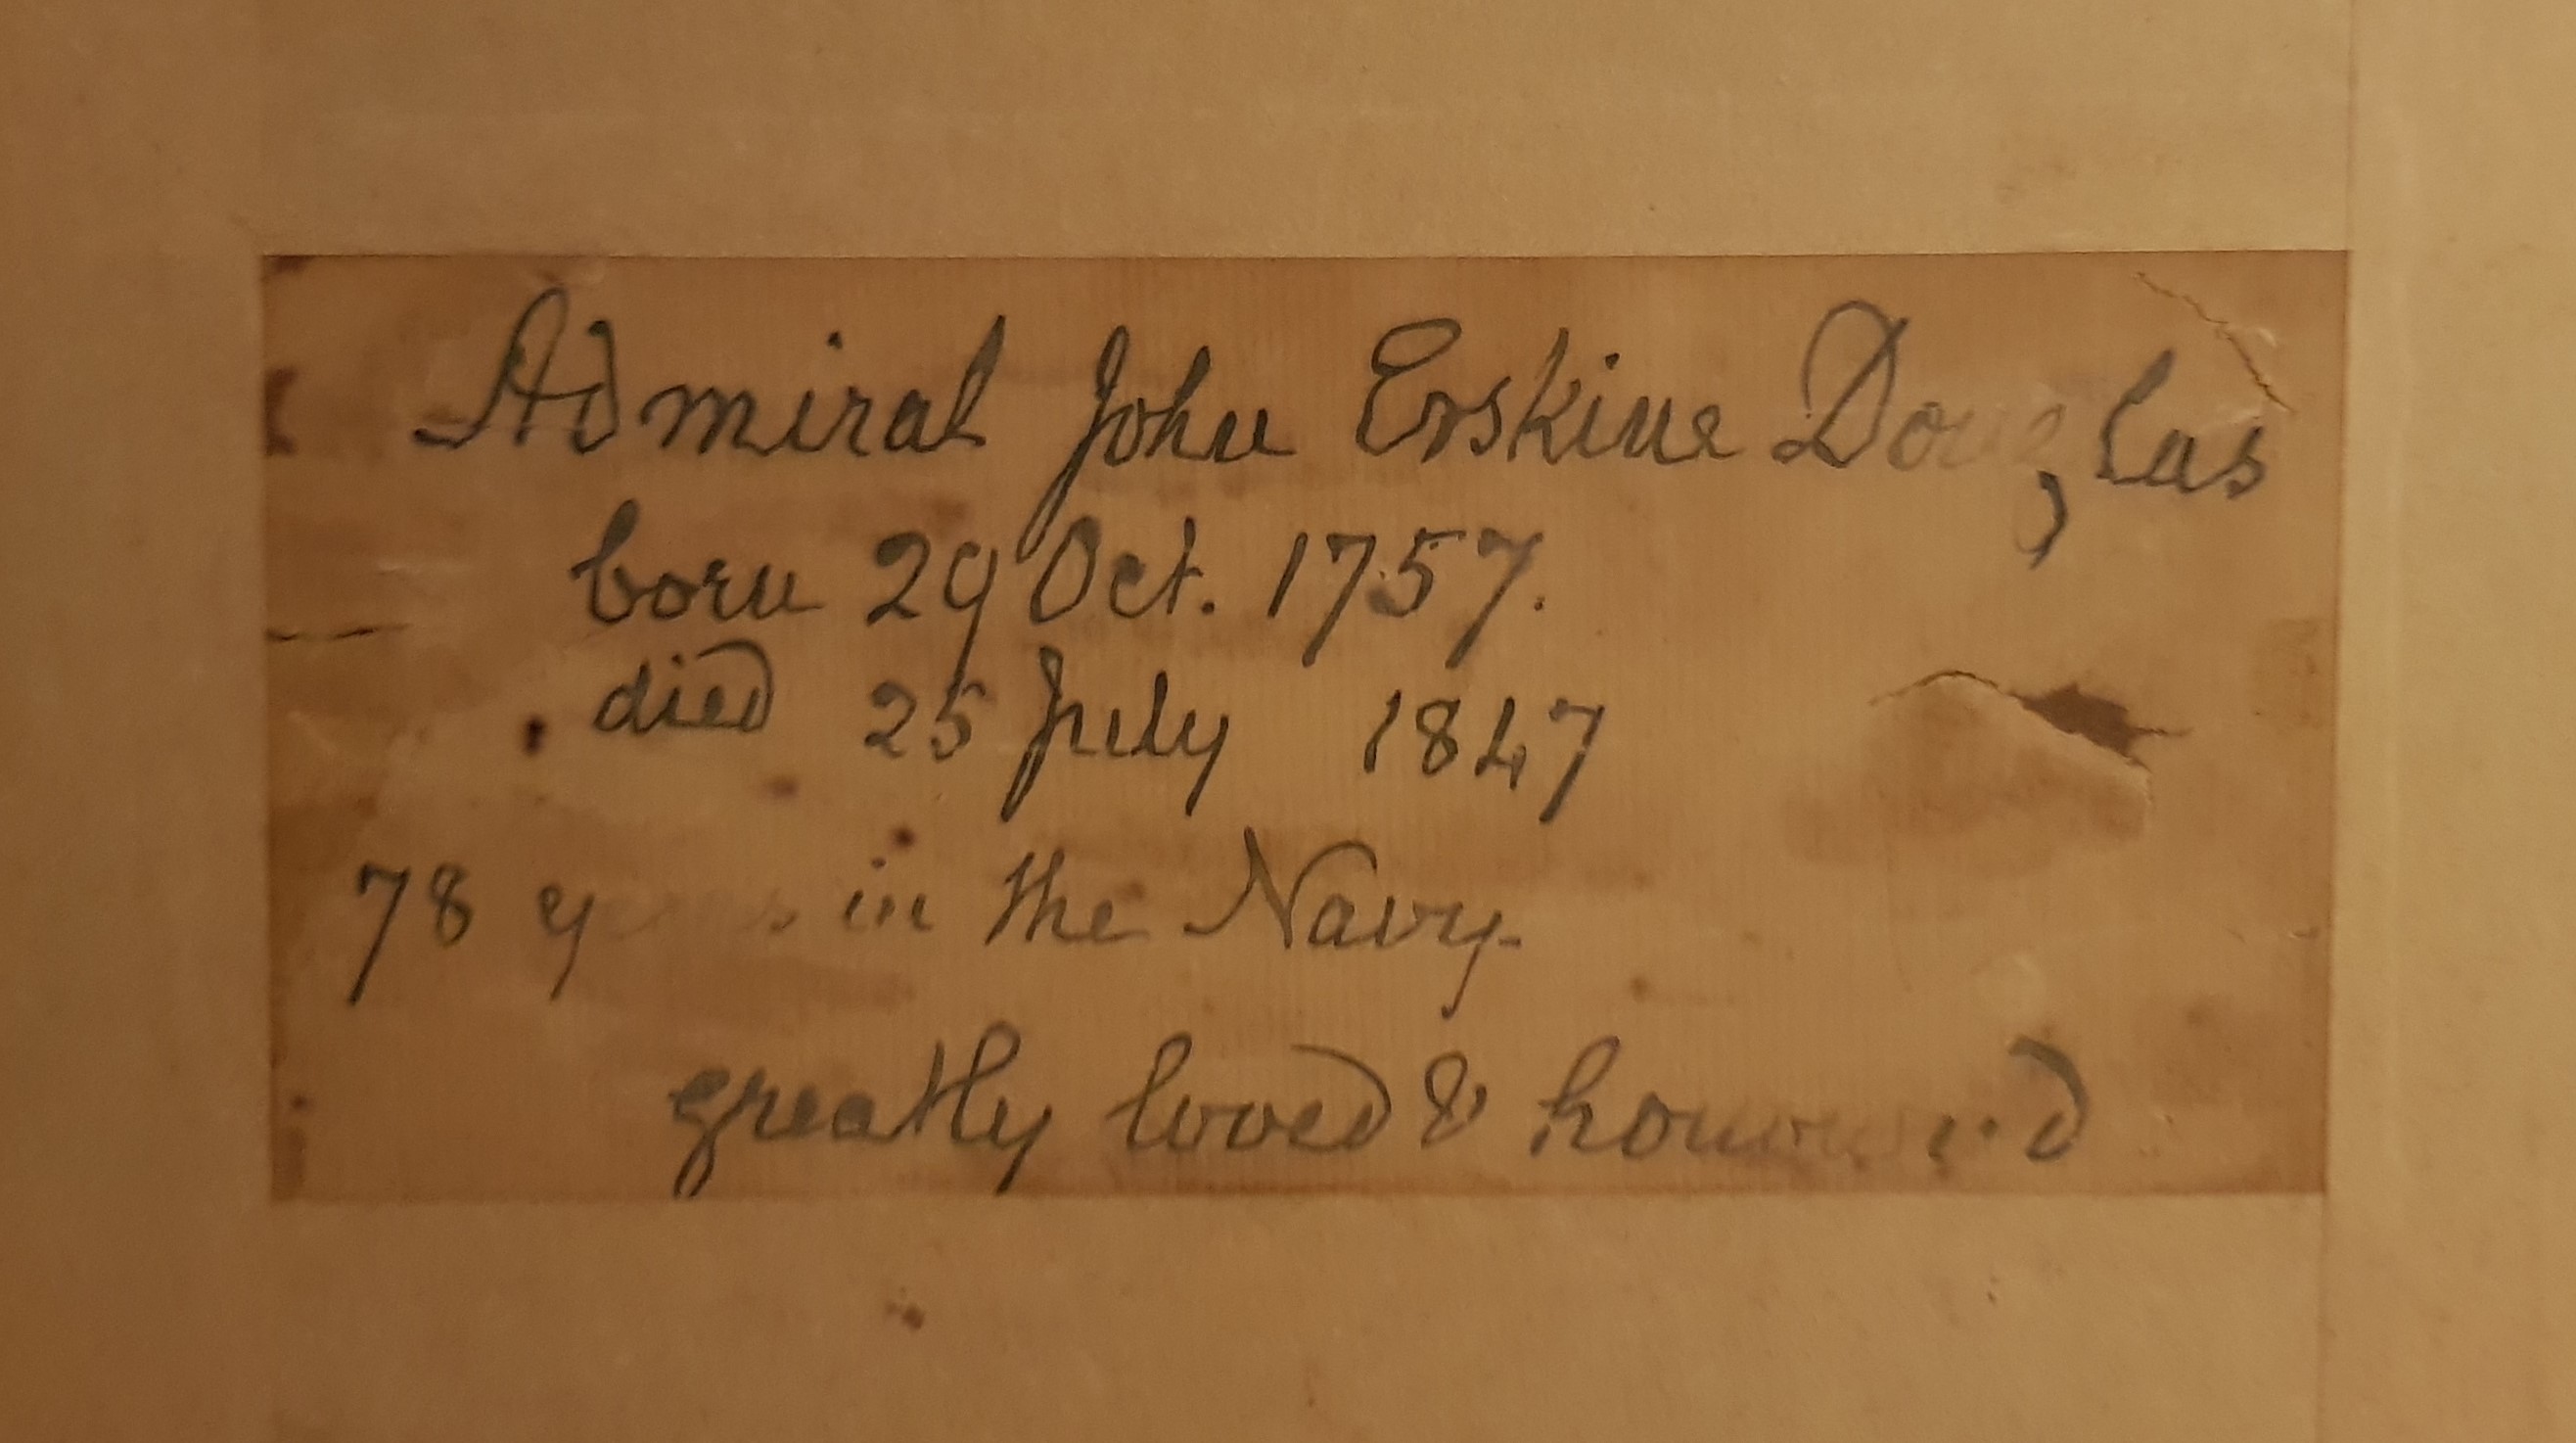 Admiral John Erskine Douglas
born 29 Oct. 1757.
died 25 July 1847
78 years in the Navy.
greatly loved & honoured